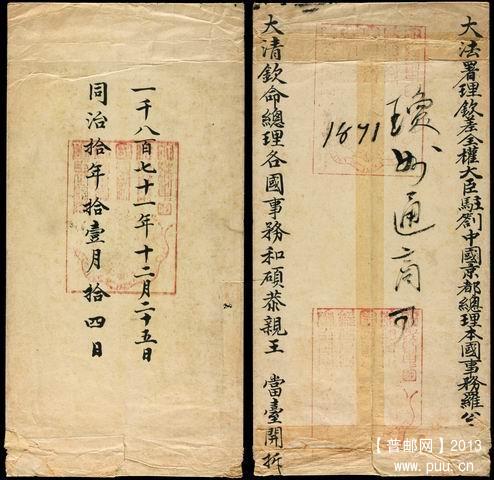 大法署理欽差全權大臣駐劄中國京都總理本國事務羅公
瓊州通商
1871
大清欽命總理各國事務和碩恭親王 當臺開拆
一千八百七十一年十二月二十五日
同治拾年拾壹月拾四日
【普邮网】2013
www.puu.cn